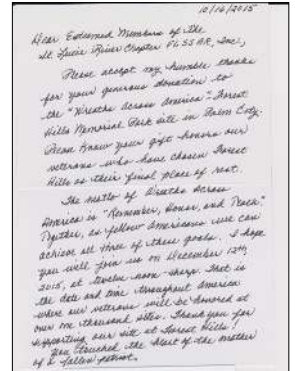 10/16/2015
Dear Esteemed Members of the
St. Lucie River Chapter FLSSAR, Inc.,
Please accept my humble thanks
for your generous donation to
the "Wreaths Across America" Forest
Hills Memorial Park site in Palm City.
Please know your gift honors our
veterans who have chosen Forest
Hills as their final place of rest.
The motto of Wreaths Across
America is "Remember, Honor, and Teach."
Together, as fellow Americans we can
achieve all three of these goals. I hope
you will join us on December 12th,
2015, at twelve noon-sharp. That is
the date and time throughout America
where our veterans will be honored at
over one thousand sites. Thank you for
supporting our site at Forest Hills!
You touched the heart of the mother
of a fallen patriot.